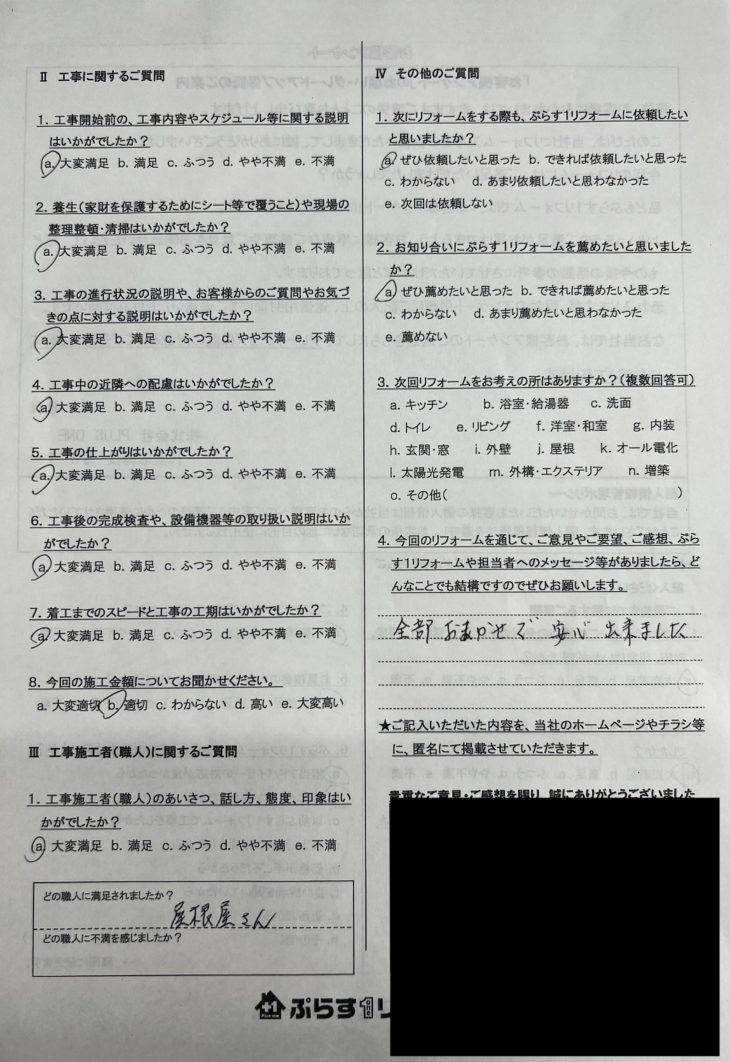 Ⅱ 工事に関するご質問
1. 工事開始前の、工事内容やスケジュール等に関する説明
はいかがでしたか?
a. 大変満足 b. 満足 c. ふつう d. やや不満 e. 不満
2. 養生(家財を保護するためにシート等で覆うこと)や現場の
整理整頓・清掃はいかがでしたか?
a. 大変満足 b. 満足 c. ふつう d. やや不満 e. 不満
3. 工事の進行状況の説明や、お客様からのご質問やお気づ
きの点に対する説明はいかがでしたか?
a. 大変満足 b. 満足 c. ふつう d. やや不満 e. 不満
4. 工事中の近隣への配慮はいかがでしたか?
a. 大変満足 b. 満足 c. ふつう d. やや不満 e. 不満
5. 工事の仕上がりはいかがでしたか?
a. 大変満足 b. 満足 c. ふつう d. やや不満 e. 不満
6. 工事後の完成検査や、設備機器等の取り扱い説明はいか
がでしたか?
a. 大変満足 b. 満足 c. ふつう d. やや不満 e. 不満
7. 着工までのスピードと工事の工期はいかがでしたか?
a. 大変満足 b. 満足 c. ふつう d. やや不満 e. 不満
8. 今回の施工金額についてお聞かせください。
a. 大変適切 b. 適切 c. わからない d. 高い e. 大変高い
Ⅲ 工事施工者(職人)に関するご質問
1. 工事施工者(職人)のあいさつ、話し方、態度、印象はい
かがでしたか?
a. 大変満足 b. 満足 c. ふつう d. やや不満 e. 不満
どの職人に満足されましたか?
屋根屋さん
どの職人に不満を感じましたか?
Ⅳ その他のご質問
1. 次にリフォームをする際も、ぷらす1リフォームに依頼したい
と思いましたか?
a. ぜひ依頼したいと思った b. できれば依頼したいと思った
c. わからない d. あまり依頼したいと思わなかった
e. 次回は依頼しない
2. お知り合いにぷらす1リフォームを薦めたいと思いました
か?
a. ぜひ薦めたいと思った b. できれば薦めたいと思った
c. わからない d. あまり薦めたいと思わなかった
e. 薦めない
3. 次回リフォームをお考えの所はありますか?(複数回答可)
a. キッチン b. 浴室・給湯器 c. 洗面
d. トイレ e. リビング f. 洋室・和室 g. 内装
h. 玄関・窓 i. 外壁 j. 屋根 k. オール電化
l. 太陽光発電 m. 外構・エクステリア n. 増築
o. その他( )
4. 今回のリフォームを通じて、ご意見やご要望、ご感想、ぷら
す1リフォームや担当者へのメッセージ等がありましたら、ど
んなことでも結構ですのでぜひお願いします。
全部おまかせで 安心 出来ました
★ご記入いただいた内容を、当社のホームページやチラシ等
に、匿名にて掲載させていただきます。
貴重なご意見・ご感想を賜り、誠にありがとうございました
+1 ぷらす1 one リ